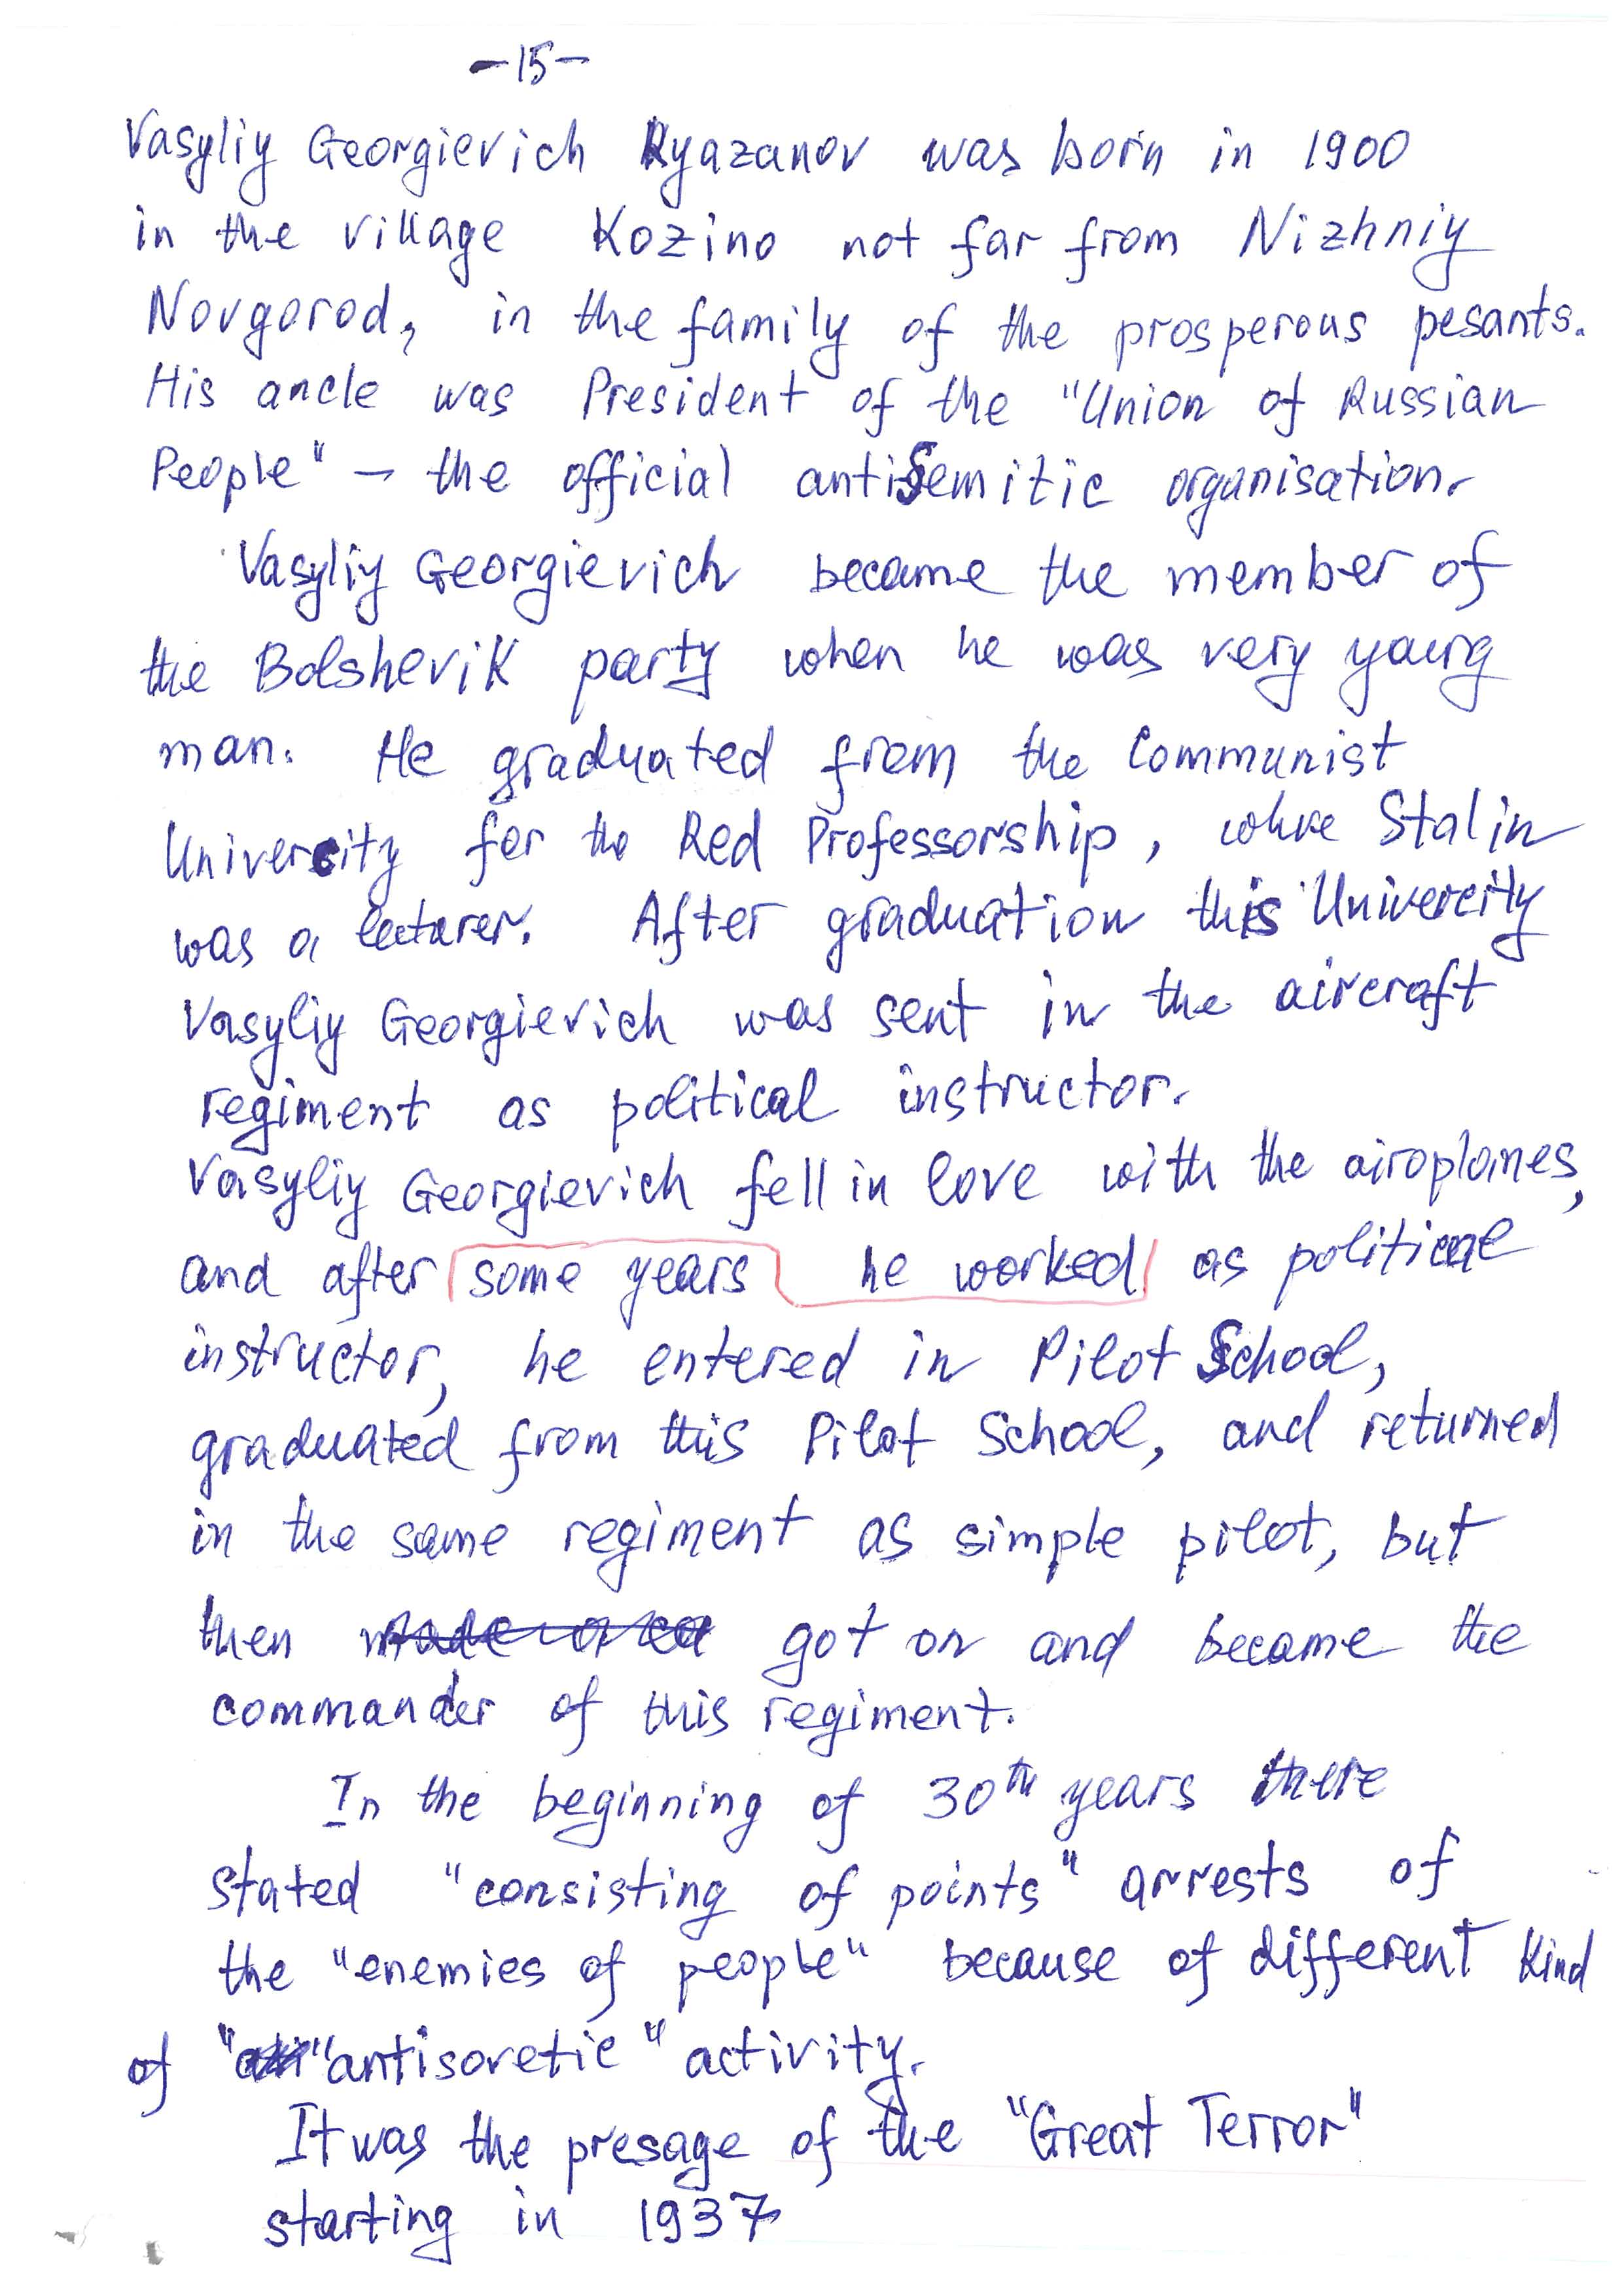 -15-
Vasyliy Georgievich Ryazanov was born in 1900
in the village Kozino not far from Nizhniy
Novgorod, in the family of the prosperous pesants.
His ancle was President of the "Union of Russian
People" - the official antiSemitic organisation.
Vasyliy Georgievich became the member of
the Bolshevik party when he was very young
man. He graduated from the Communist
Univercity for the Red Professorship, where Stalin
was a lectarer. After graduation this Univercity
Vasyliy Georgievich was sent in the aircraft
regiment as political instructor.
Vasyliy Georgievich fell in love with the airoplanes,
and after some years he worked as political
instructor, he entered in Pilot School,
graduated from this Pilot School, and returned
in the same regiment as simple pilot, but
then got on and became the
commander of this regiment.
In the beginning of 30th years there
stated "consisting of points" arrests of
the "enemies of people" because of different kind
of "antisovetic" activity.
It was the presage of the "Great Terror"
starting in 1937